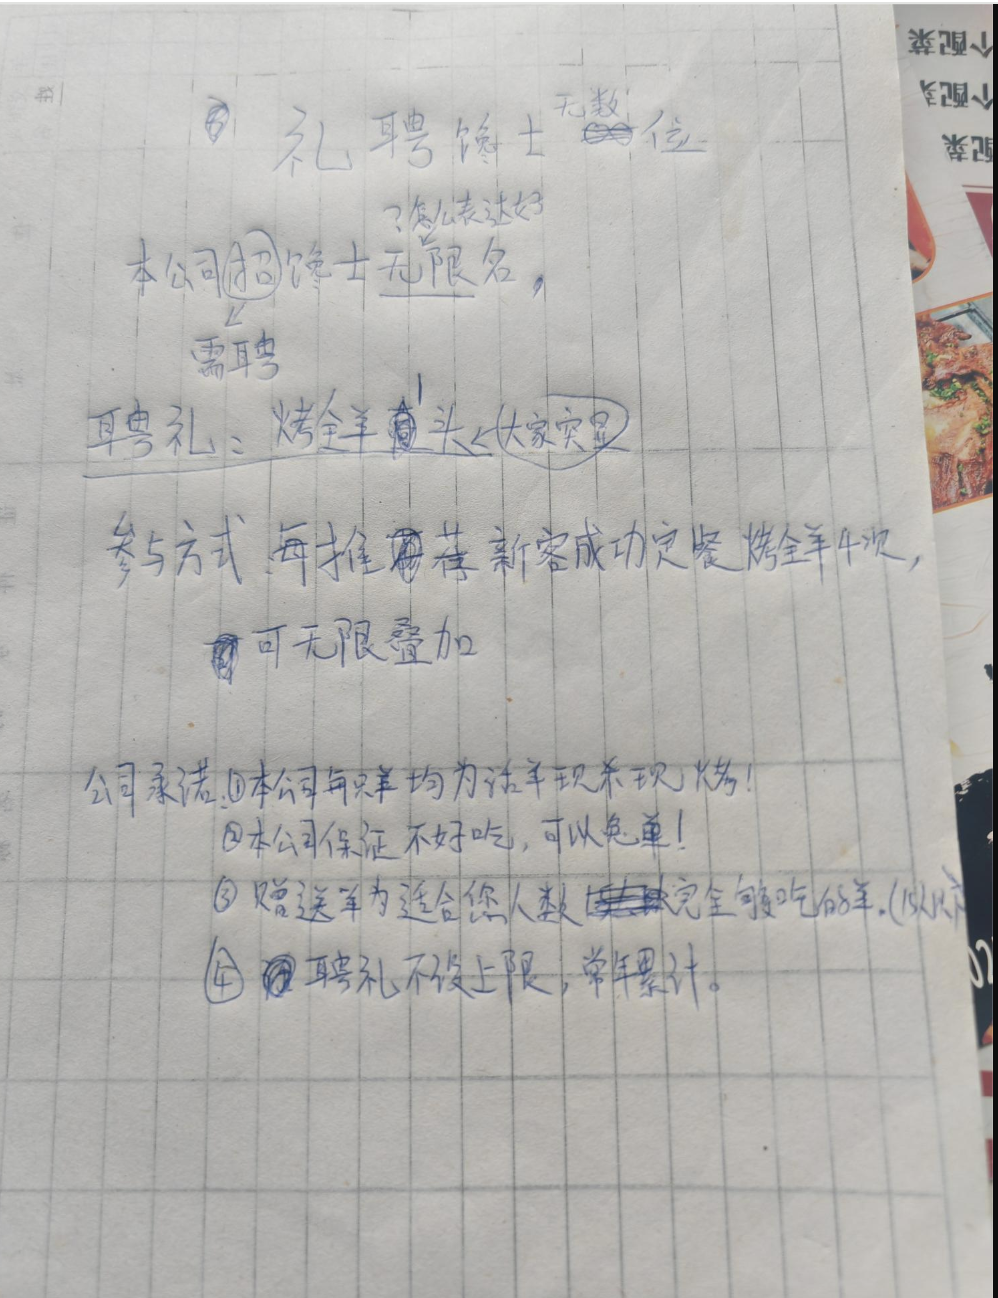 礼聘馋士无数位
?怎么表达好
本公司招馋士无限名,
需聘
聘礼: 烤全羊1头<大家突显
参与方式 每推荐新客成功定餐烤全羊4次,
可无限叠加
公司承诺:①本公司每只羊均为活羊现杀现烤!
②本公司保证不好吃,可以免单!
③赠送羊为适合您人数完全够吃的羊。
④聘礼不设上限,常年累计。
个配菜
个配菜
配菜